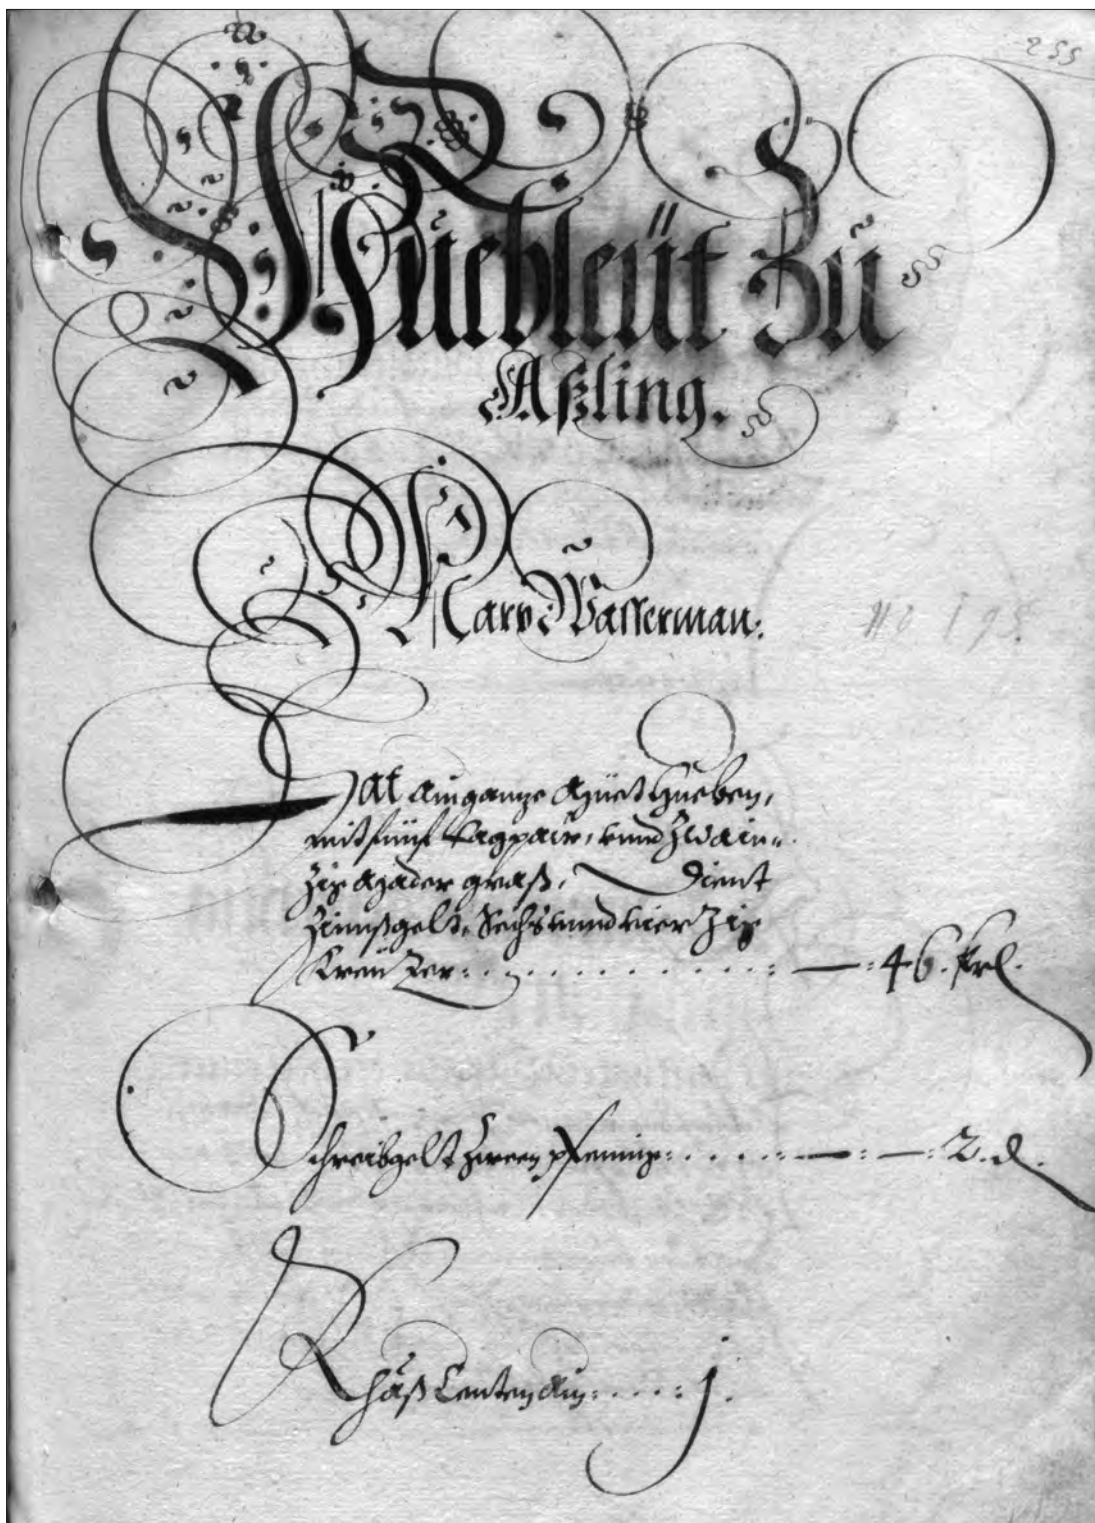 255
Huebleüt Zu
Aßling.
Marx Wasserman:
N o 193.
Hat ain ganze Güet Hueben,
mit fünf tagpaür, vnnd Zwain=
zig Mader graß, Dient
Zinnßgelt, Sechs vnnd vier Zig
Kreüzer: . . . . . . . . . . : — : 46. krl.
Schreibgelt Zween pfenning: . . . . : — : — : 2. d.
Khäß Centen Ain: . . . . : j.